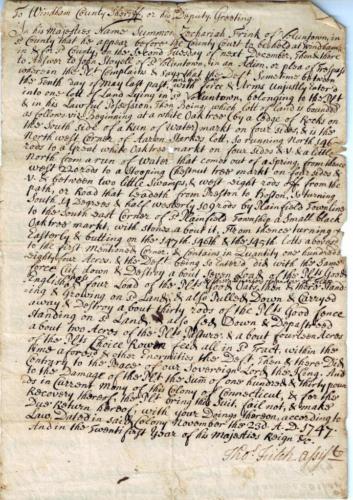 To Windham County Sheriff or his Deputy Greeting
In his Majesties Name Summon Zachariah Frink of Voluntown, in
sd County that he appear before the County Court to be held at Windham in
& for sd County on the Second Tuesday of next December, then & there
to Answer to John Stoyell of sd Voluntown, in an Action, or plea of Trespass
wherein the Plt Complains & says that the Deft Sometime between
the Tenth day of May last past, with force & Arms Unjustly Enter
into one Lott of Land lying in sd Voluntown, belonging to the Plt
& in his Lawful Possession, Then Being, which Lott of Land is bounded
as follows viz. Beginning at a white Oak tree by a Ledge of Rocks on
the South side of a Run of Water markt on four sides & is the
North west Corner of Aaron Lott, So running North 146
rods to a Great white Oak markt on four sides & V. & a little
North from a run of Water that comes out of a Spring from thence
west 120 rods to a Stooping Chestnut tree markt on four sides &
V: & between two little Swamps, & west Eight rods off from the
path, or Road that Leadeth from Preston to Boston, & turning
South 14 Degrees & half westerly 109 rods by Plainfield Town line
to the South east Corner of sd Plainfield Township a Small black
Oak tree markt, with Stones about it, From thence turning
Easterly & butting on the 147th 146th & the 145th Lotts aboves
to the first mentioned Corner, & Contains in Quantity one hundred
Eighty four Acres, & the Deft being so Enter'd did with the Same
force Cut down & Destroy about Seven Load of the Plts Good
English & four Load of the Plts then & there
& Growing on sd Land, & also Pulled Down & Carryed
away & Destroy about thirty rods of the Plts Good fence
Standing on sd Land, & also fed Down & Depastured
about two Acres of the Plts Pasture & about fourteen Acres
of the Plts Choice Rowen feed on sd Tract, within the
time aforesd & other Enormities the Deft Then & there Did
Contrary to the Peace of our Sovereign Lord the King, And
to the Damage of the Plt the Sum of one hundred & thirty pounds
in Current money of this Colony of Connecticut, & for the
Recovery thereof the Plt bring this Suit fail not, & make
Due Return hereof, with your Doings thereon, according to
Law. Dated in said Colony November the 23d A.D. 1747
And in the Twenty first Year of his Majesties Reign &c.
Tho: Fitch Assist